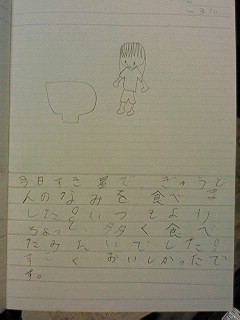 今日すき量で ぎゅうど
んのなみを食べま
した。いつもより
ちょっと多く食べ
たみたいでした。
すごくおいしかったで
す。